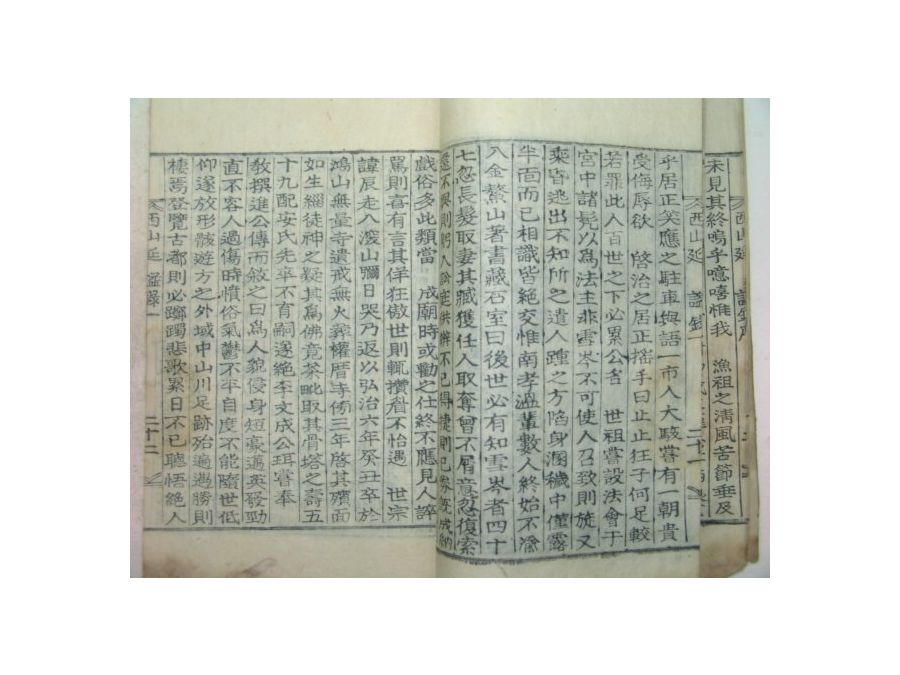 未見其終嗚乎噫嘻惟我 漁祖之清風苦節垂及
西山延
乎居正笑應之駐車與語一市人大駭嘗有一朝貴
受侮辱欲 啓治之居正搭手曰止止狂子何足較
若罪此人百世之下必累公名 世祖嘗設法會于
宮中諸髡以爲法主非雪岑不可使人召致則旋又
乘昏逃出不知所之遣人踵之方陷身溷穢中僅露
半面而已相識皆絶交惟南孝溫輩數人終始不渝
入金鰲山著書藏石室曰後世必有知雪岑者四十
七忽長髮取妻其臧獲任人取奪曾不屑意忽復索
還不與則
戲俗多此類當 成廟時或勸之仕終不應見人誶
罵則喜有言其佯狂傲世則輒攢眉不怡遇 世宗
諱辰走入深山彌日哭乃返以弘治六年癸丑卒於
鴻山無量寺遺戒無火葬權厝寺傍三年啓其殯面
如生緇徒神之疑其爲佛竟茶毗取其骨塔之壽五
十九配安氏先卒不育嗣遂絶李文成公珥嘗奉
教撰進公傳而敘之曰爲人貌侵身短豪邁英發勁
直不容人過傷時憤俗氣鬱不平自度不能隨世低
仰遂放形骸遊方之外域中山川足跡殆遍遇勝則
棲焉登覽古都則必躑躅悲歌累日不已聰悟絶人
西山延 錄一 二十二